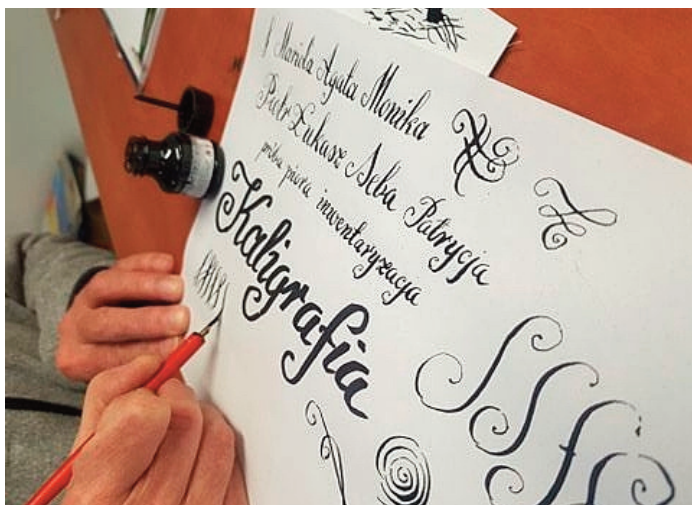 Mariola Agata Monika
Piotr Łukasz Seba Patrycja
próba pióra inwentaryzacja
Kaligrafia